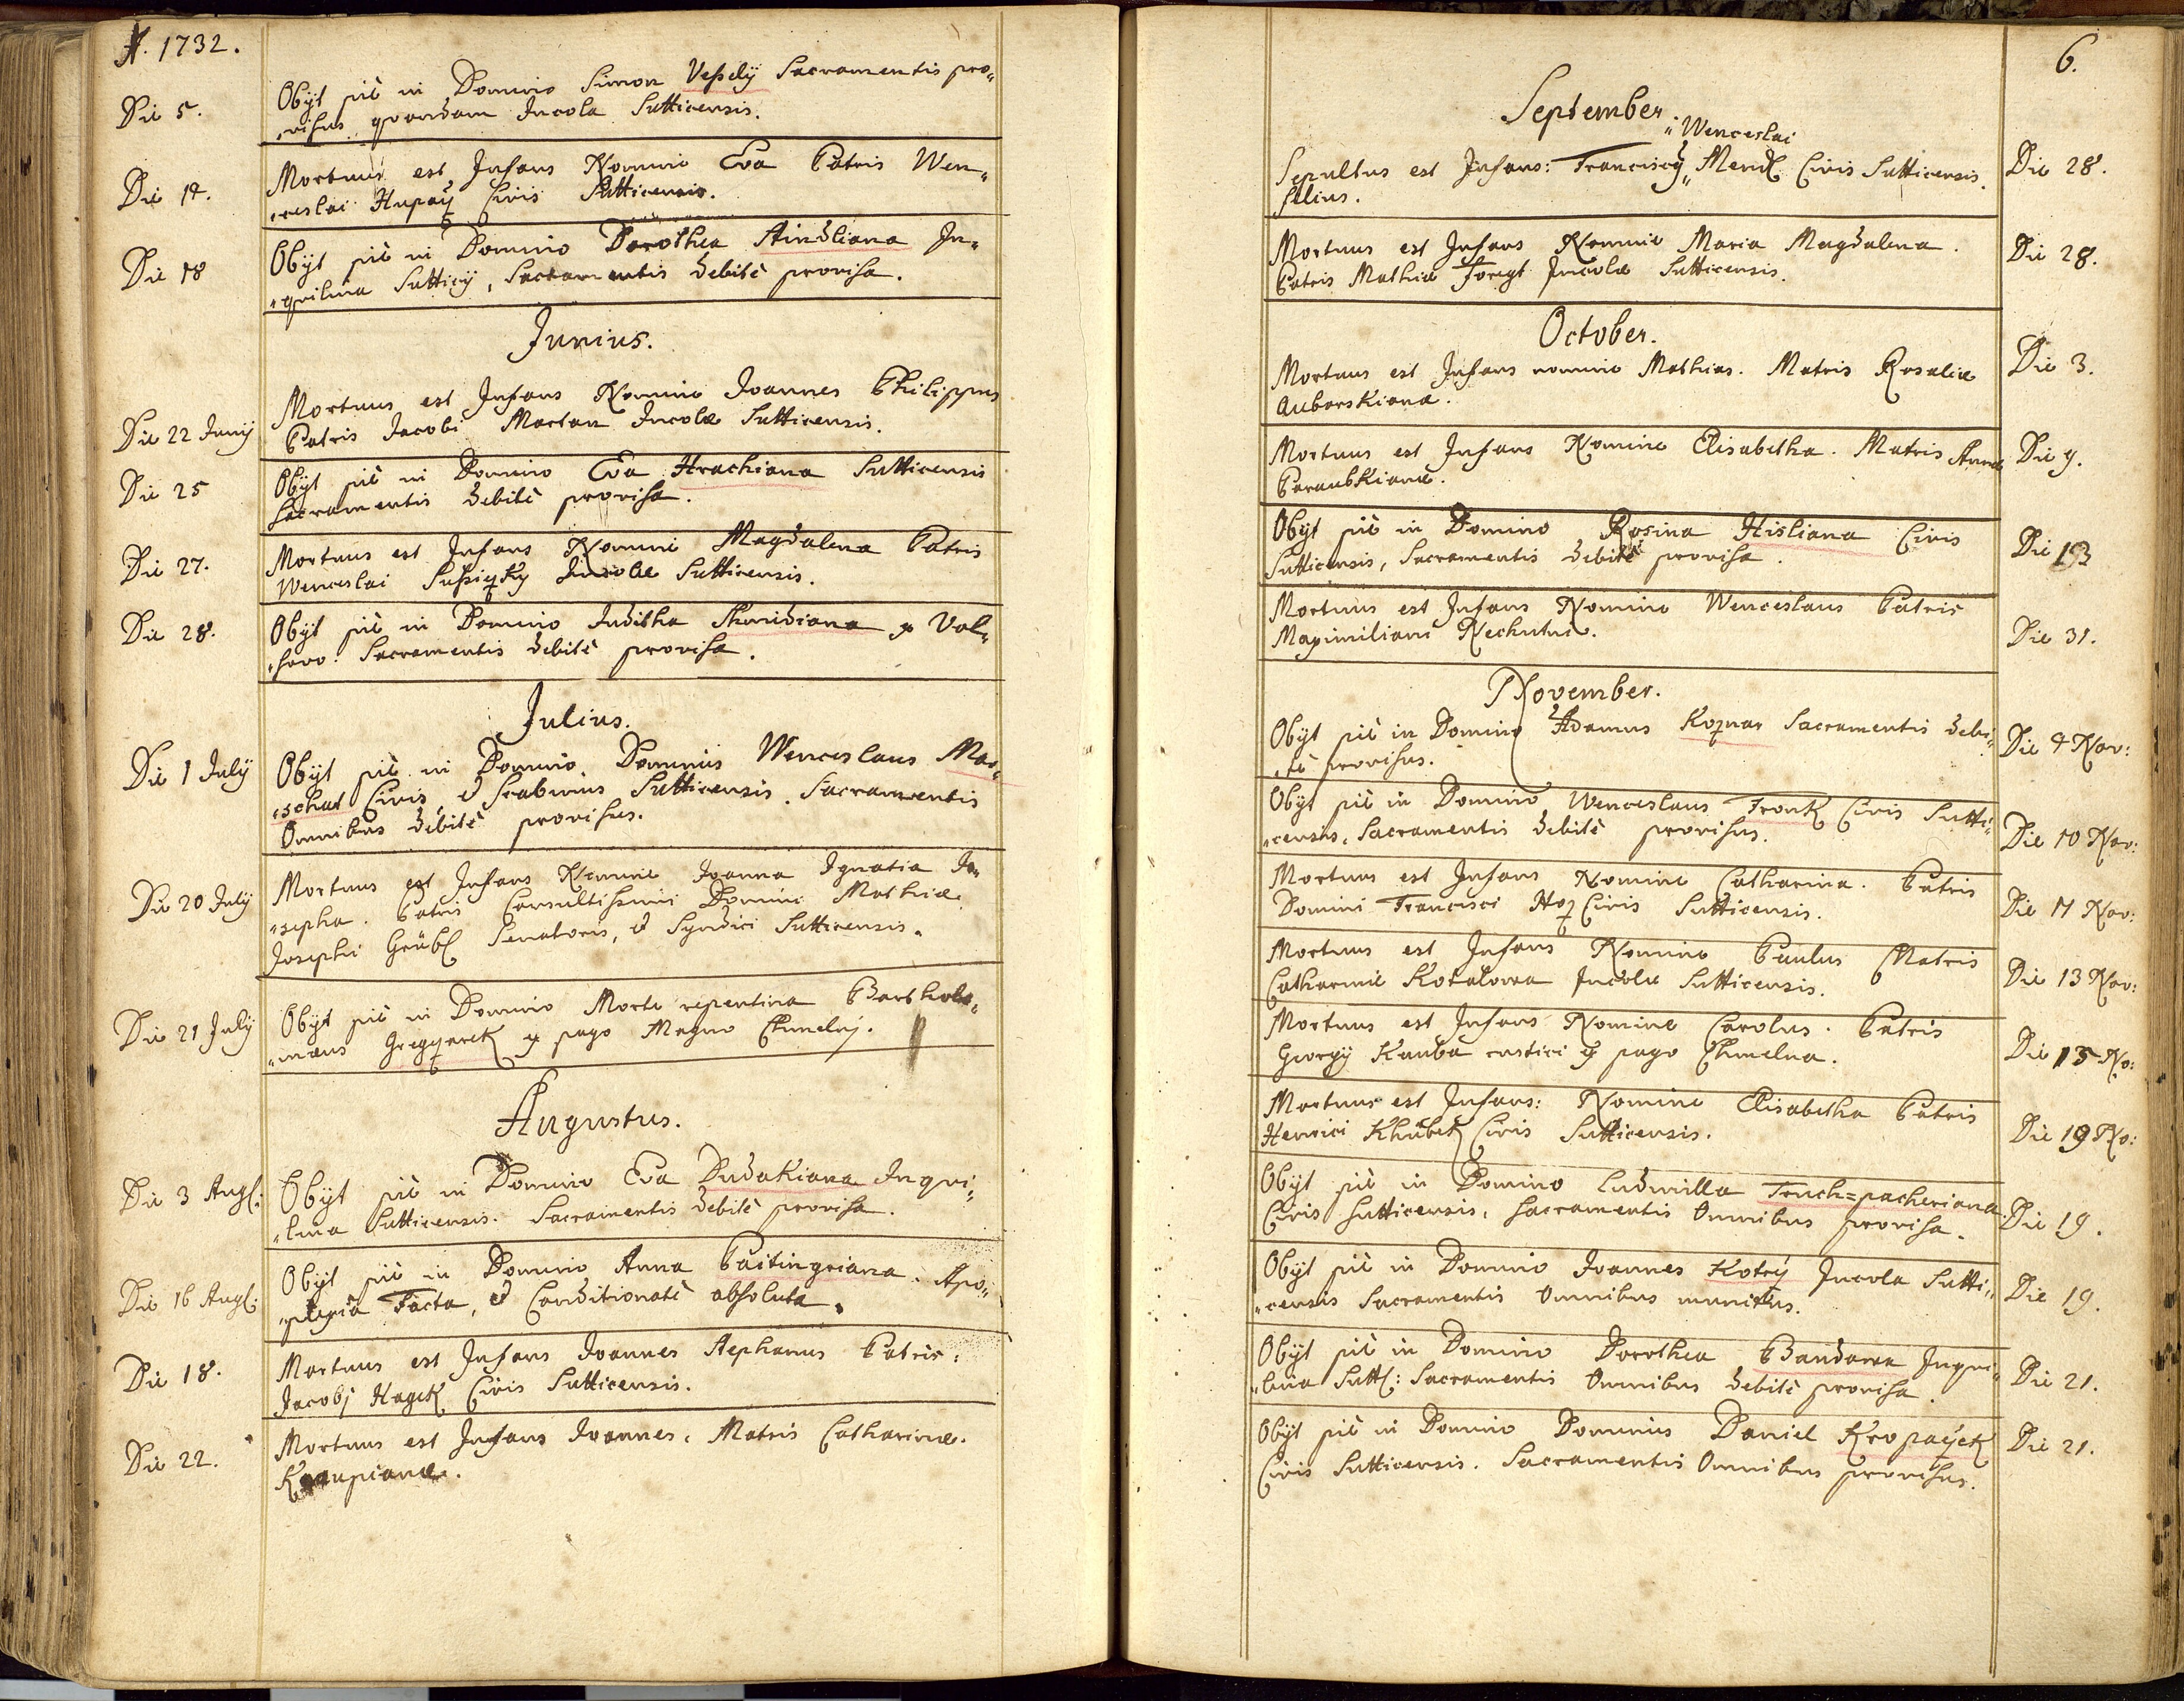 A. 1732.
Die 5. Obÿt piè in Domino Simon Veßelÿ Sacramentis pro„
„visus quondam Incola Sutticensis.
Die 14. Mortuus est Infans Nomine Eva Patris Wen„
„ceslai Civis Sutticensis.
Die 18 Obÿt piè in Domino Dorothea Aindliana In„
„quilina Sutticÿ, Sacramentis debitè provisa.
Junius.
Die 22 Junÿ Mortuus est Infans Nomine Joannes Philippus
Patris Jacobi Martan Incolæ Sutticensis.
Die 25 Obÿt piè in Domino Eva Hrachiana Sutticensis
Sacramentis debitè provisa.
Die 27. Mortuus est Infans Nomine Magdalena Patris
Wenceslai Incolæ Sutticensis.
Die 28. Obÿt piè in Domino Juditha Shmidiana ex Vol„
„ssovo: Sacramentis debitè provisa.
Julius.
Die 1 July Obÿt piè in Domino Dominus Wenceslaus Mar„
„schat Civis, et Scabinus Sutticensis. Sacramentis
Omnibus debitè provisus.
Die 20 July Mortuus est Infans Nomine Joanna Ignatia Jo„
„sepha. Patris Consultissimi Domini Mathiæ
Josephi Grübl Senatoris, et Syndici Sutticensis.
Die 21 July Obÿt piè in Domino Morte repentina Bartholo„
„mæus ex pago Magno Chmelný.
Augustus.
Die 3 Augs: Obÿt piè in Domino Eva Dudakiana Inqui„
„lina Sutticensis. Sacramentis debitè provisa.
Die 16 Augs: Obÿt piè in Domino Anna Paitingriana. Apo„
„plexia Tacta, et Conditionatè absoluta.
Die 18. Mortuus est Infans Joannes Stephanus Patris:
Jacobj Hagek Civis Sutticensis.
Die 22. Mortuus est Infans Joannes. Matris Catharinæ.
6.
September.
„Wenceslai
Sepultus est Infans: Franciscus„ Mendl Civis Sutticensis. Die 28.
filius.
Mortuus est Infans Nomine Maria Magdalena. Die 28.
Patris Mathiæ Foregt Incolæ Sutticensis.
October.
Mortuus est Infans nomine Mathias. Matris Rosaliæ Die 3.
Auborskiana.
Mortuus est Infans Nomine Elisabetha. Matris Annæ Die 9.
Paraubkianæ.
Obÿt piè in Domino Rosina Hisliana Civis Die 13
Sutticensis, Sacramentis debitè provisa.
Mortuus est Infans Nomine Wenceslaus Patris
Maximiliani Nechutni. Die 31.
November.
Obÿt piè in Domino Adamus Koznar Sacramentis debi„ Die 4 Nov:
„tè provisus.
Obÿt piè in Domino Wenceslaus Fronk Civis Sutti„ Die 10 Nov:
„censis, Sacramentis debitè provisus.
Mortuus est Infans Nomine Catharina. Patris Die 11 Nov:
Domini Francisci Civis Sutticensis.
Mortuus est Infans Nomine Paulus Matris Die 13 Nov:
Catharinæ Kovalovva Incolæ Sutticensis.
Mortuus est Infans Nomine Carolus. Patris Die 15 No:
Georgÿ Kauba rustici ex pago Chmelna.
Mortuus est Infans: Nomine Elisabetha Patris Die 19 No:
Henrici Khübek Civis Sutticensis.
Obÿt piè in Domino Ludmilla Truch=pacheriana. Die 19.
Civis Sutticensis, Sacramentis Omnibus provisa.
Obÿt piè in Domino Joannes Kotrÿ Incola Sutti„ Die 19.
„censis Sacramentis Omnibus munitus.
Obÿt piè in Domino Dorothea Inqui„ Die 21.
„lina Sutts: Sacramentis Omnibus debitè provisa.
Obÿt piè in Domino Dominus Daniel Kropaÿek Die 21.
Civis Sutticensis. Sacramentis Omnibus provisus.